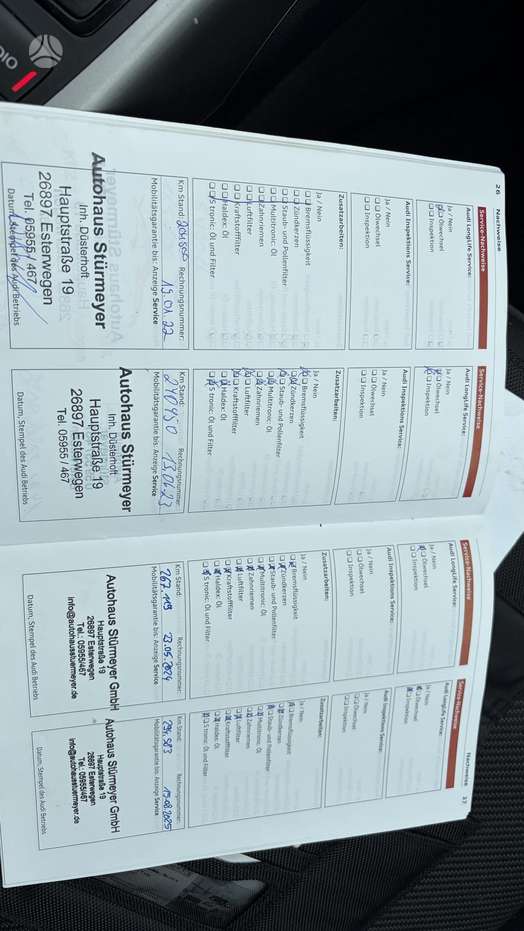 26 Nachweise
Service-Nachweise
Audi LongLife Service:
Ja / Nein
Ölwechsel
Inspektion
Audi Inspektions Service:
Ja / Nein
Ölwechsel
Inspektion
Zusatzarbeiten:
Ja / Nein
Bremsflüssigkeit
Zündkerzen
Staub- und Pollenfilter
Multitronic: Öl
Zahnriemen
Luftfilter
Kraftstofffilter
Haldex: Öl
S tronic: Öl und Filter
Km Stand: Rechnungsnummer:
19.01.22
Mobilitätsgarantie bis: Anzeige Service
Autohaus Stürmeyer
Inh. Düsterhöft
Hauptstraße 19
26897 Esterwegen
Tel. 05955 / 467
Datum, Stempel des Audi Betriebs
Service-Nachweise
Audi LongLife Service:
Ja / Nein
Ölwechsel
Inspektion
Audi Inspektions Service:
Ja / Nein
Ölwechsel
Inspektion
Zusatzarbeiten:
Ja / Nein
Bremsflüssigkeit
Zündkerzen
Staub- und Pollenfilter
Multitronic: Öl
Zahnriemen
Luftfilter
Kraftstofffilter
Haldex: Öl
S tronic: Öl und Filter
Km Stand: Rechnungsnummer:
240950
Mobilitätsgarantie bis: Anzeige Service
Autohaus Stürmeyer
Inh. Düsterhöft
Hauptstraße 19
26897 Esterwegen
Tel. 05955 / 467
Datum, Stempel des Audi Betriebs
Service-Nachweise
Audi LongLife Service:
Ja / Nein
Ölwechsel
Inspektion
Audi Inspektions Service:
Ja / Nein
Ölwechsel
Inspektion
Zusatzarbeiten:
Ja / Nein
Bremsflüssigkeit
Zündkerzen
Staub- und Pollenfilter
Multitronic: Öl
Zahnriemen
Luftfilter
Kraftstofffilter
Haldex: Öl
S tronic: Öl und Filter
Km Stand: Rechnungsnummer:
23.05.2024
Mobilitätsgarantie bis: Anzeige Service
Autohaus Stürmeyer GmbH
Hauptstraße 19
26897 Esterwegen
Tel.: 05955/467
info@autohausstuermeyer.de
Datum, Stempel des Audi Betriebs
Nachweise 27
Service-Nachweise
Audi LongLife Service:
Ja / Nein
Ölwechsel
Inspektion
Audi Inspektions Service:
Ja / Nein
Ölwechsel
Inspektion
Zusatzarbeiten:
Ja / Nein
Bremsflüssigkeit
Zündkerzen
Staub- und Pollenfilter
Multitronic: Öl
Zahnriemen
Luftfilter
Kraftstofffilter
Haldex: Öl
S tronic: Öl und Filter
Km Stand: Rechnungsnummer:
Mobilitätsgarantie bis: Anzeige Service
Autohaus Stürmeyer GmbH
Hauptstraße 19
26897 Esterwegen
Tel.: 05955/467
info@autohausstuermeyer.de
Datum, Stempel des Audi Betriebs